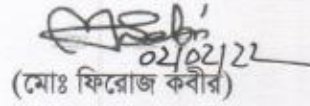 02/02/22
(মোঃ ফিরোজ কবীর)